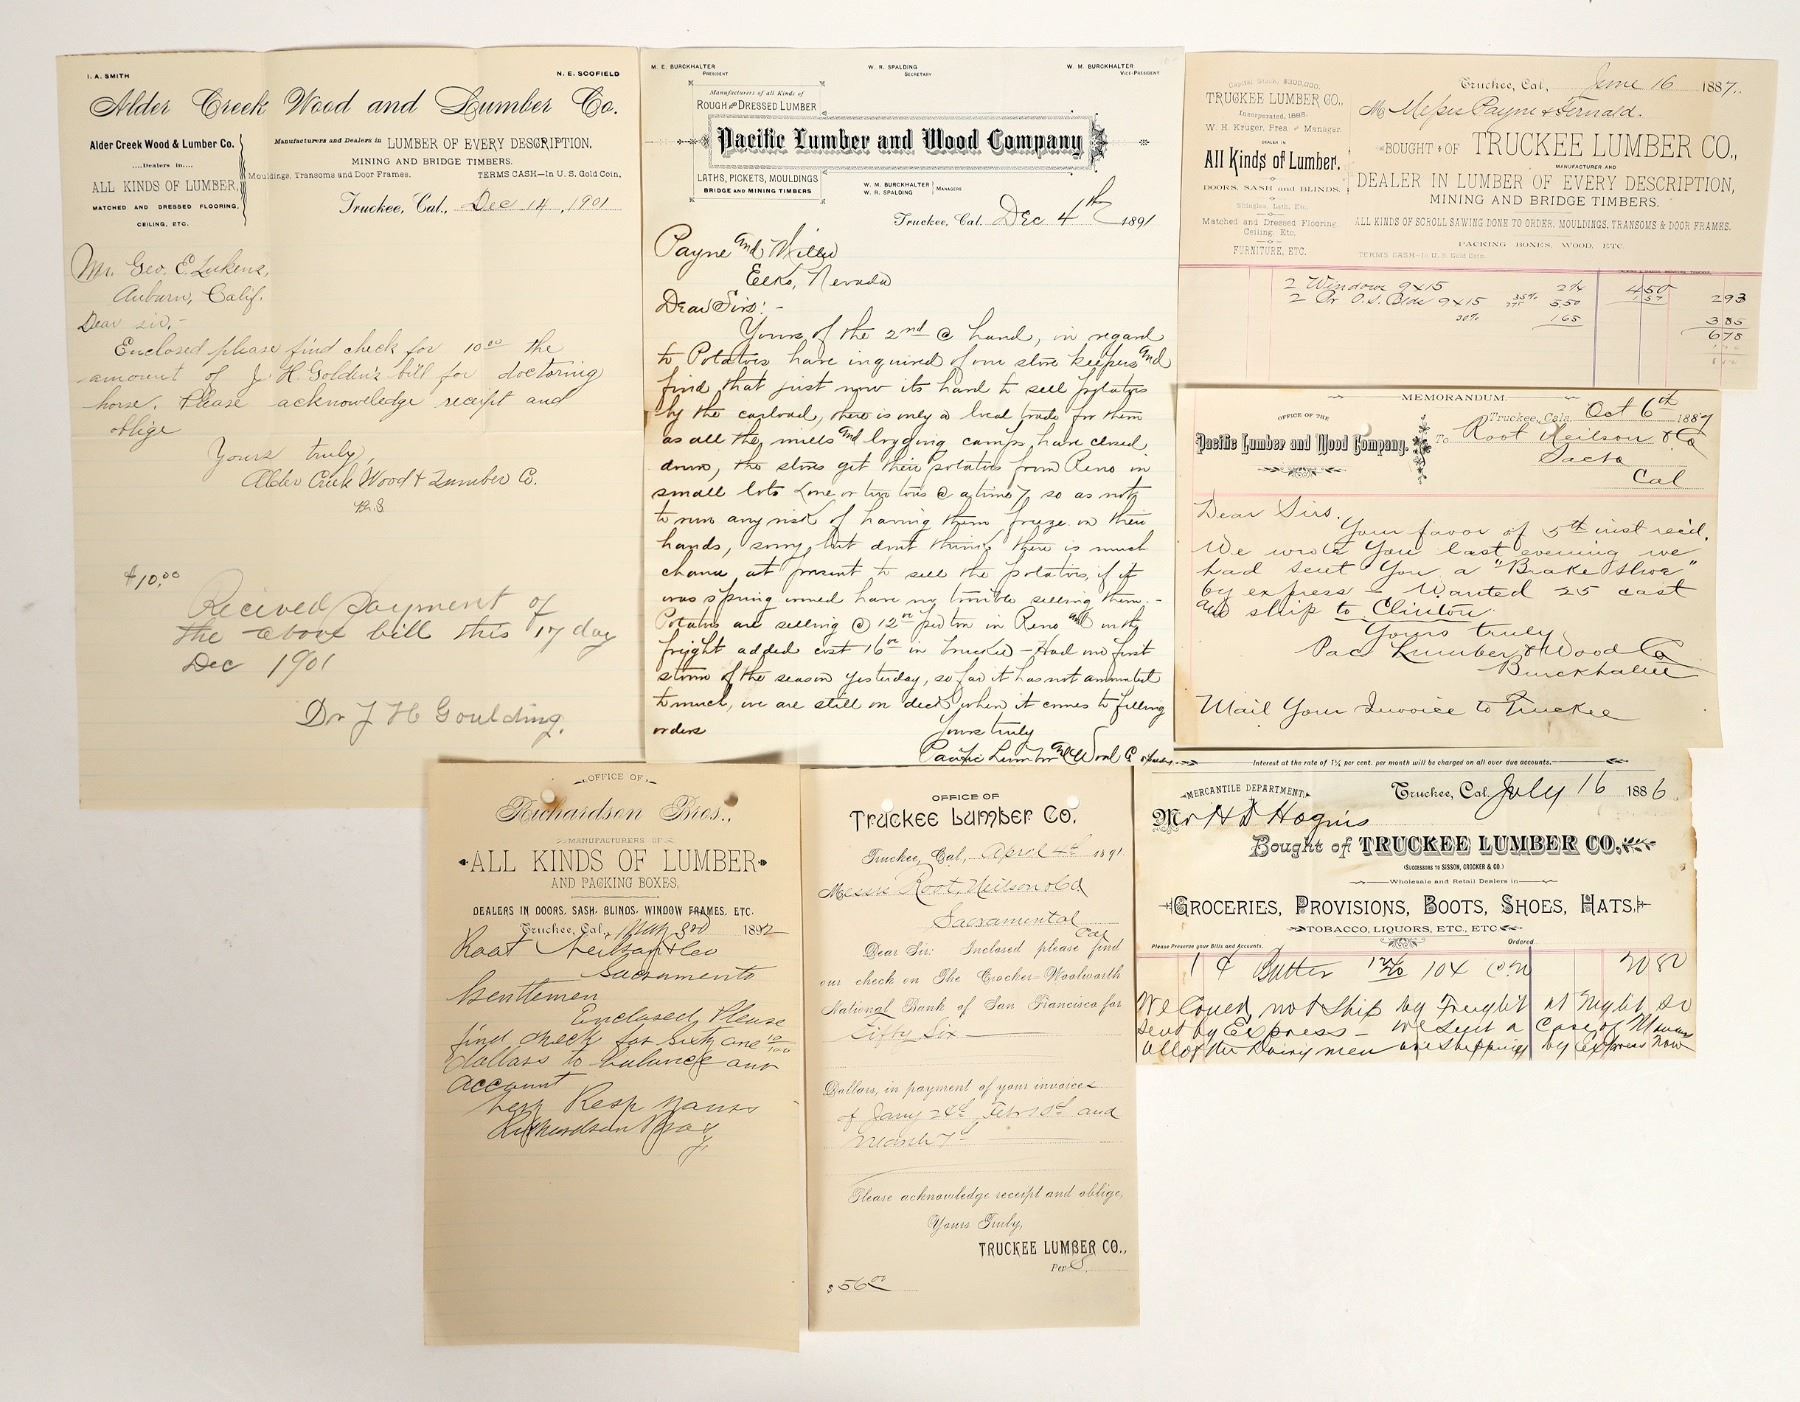 I. A. SMITH
N. E. SCOFIELD
Alder Creek Wood and Lumber Co.
Alder Creek Wood & Lumber Co.
....Dealers in....
ALL KINDS OF LUMBER,
MATCHED AND DRESSED FLOORING,
CEILING, ETC.
Manufacturers and Dealers in LUMBER OF EVERY DESCRIPTION,
MINING AND BRIDGE TIMBERS.
Mouldings, Transoms and Door Frames. TERMS CASH—In U.S. Gold Coin.
Truckee, Cal., Dec 14, 1901
Mr. Geo. E. Lukens,
Auburn, Calif.
Dear sir,-
Enclosed please find check for 10.00 the
amount of J. H. Golden's bill for doctoring
horse. Please acknowledge receipt and
oblige
Yours truly,
Alder Creek Wood & Lumber Co.
$10.00
Recieved payment of
the above bill this 17 day
Dec 1901
Dr J H Goulding.
M. E. BURCKHALTER
PRESIDENT
W. R. SPALDING
SECRETARY
W. M. BURCKHALTER
VICE-PRESIDENT
Manufacturers of all Kinds of
ROUGH AND DRESSED LUMBER
Pacific Lumber and Wood Company
LATHS, PICKETS, MOULDINGS
BRIDGE AND MINING TIMBERS
W. M. BURCKHALTER
W. R. SPALDING
MANAGERS
Truckee, Cal. Dec 4th 1891
Payne and
Elko, Nevada
Dear Sirs:-
Yours of the 2nd @ hand, in regard
to Potatoes have inquired of our store keepers and
find that just now its hard to sell potatoes
by the carload, there is only a local trade for them
as all the mills and logging camps have closed
down, the stores get their potatoes from Reno in
small lots (one or two tons @ a time) so as not
to run any risk of having them freeze on their
hands, sorry but dont think there is much
chance at present to sell the potatoes, if it
was spring would have no trouble selling them.-
Potatoes are selling @ 12.00 per ton in Reno and with
freight added cost 16.00 in Truckee - Had our first
storm of the season yesterday, so far it has not amounted
to much, we are still on deck when it comes to filling
orders
Yours truly
Pacific Lumber and Wood Co
Capital Stock, $300,000.
TRUCKEE LUMBER CO.,
Incorporated, 1885.
W. H. Kruger, Pres. and Manager.
DEALER IN
All Kinds of Lumber.
DOORS, SASH and BLINDS,
Shingles, Lath, Etc.
Matched and Dressed Flooring
Ceiling, Etc,
FURNITURE, ETC.
Truckee, Cal., June 16 1887.
M Messrs Payne & Fernald.
BOUGHT OF TRUCKEE LUMBER CO.,
MANUFACTURER AND
DEALER IN LUMBER OF EVERY DESCRIPTION,
MINING AND BRIDGE TIMBERS.
ALL KINDS OF SCROLL SAWING DONE TO ORDER, MOULDINGS, TRANSOMS & DOOR FRAMES,
PACKING BOXES, WOOD, ETC.
TERMS CASH—In U. S. Gold Coin.
2 Windows 9x15 2¼ 450 157 293
2 Pr O.S. Blds 9x15 35% 550
30% 165 385
678
MEMORANDUM.
OFFICE OF THE
Pacific Lumber and Wood Company.
Truckee, Cala. Oct 6th 1887
To Root Neilson & Co
Sacto
Cal
Dear Sirs.
Your favor of 5th inst rec'd.
We wrote you last evening we
had sent you a "Brake Shoe"
by express - Wanted 25 cast
and ship to Clinton.
Yours truly
Pac Lumber & Wood Co
Burckhalter
Mail Your Invoice to Truckee
OFFICE OF
Richardson Bros.,
MANUFACTURERS OF
ALL KINDS OF LUMBER
AND PACKING BOXES,
DEALERS IN DOORS, SASH, BLINDS, WINDOW FRAMES, ETC.
Truckee, Cal., 1892
Root Neilson & Co
Sacramento
Gentlemen
Enclosed Please
find check for sixty one 10/100
dollars to balance our
account
Very Resp Yours
Richardson Bros
OFFICE OF
Truckee Lumber Co.
Truckee, Cal, April 4th 1891
Messrs Root, Neilson & Co
Sacramento
Cal
Dear Sir: Inclosed please find
our check on The Crocker-Woolworth
National Bank of San Francisco for
Fifty Six
Dollars, in payment of your invoices
of Jany 24th, Feb 10th and
March 7th
Please acknowledge receipt and oblige,
Yours Truly,
TRUCKEE LUMBER CO.,
Per S.
$56.00
Interest at the rate of 1¼ per cent. per month will be charged on all over due accounts.
MERCANTILE DEPARTMENT.
Truckee, Cal. July 16 1886
Mr H D Hogins
Bought of TRUCKEE LUMBER CO.,
(SUCCESSORS TO SISSON, CROCKER & CO.)
Wholesale and Retail Dealers in
GROCERIES, PROVISIONS, BOOTS, SHOES, HATS,
TOBACCO, LIQUORS, ETC., ETC
Please Preserve your Bills and Accounts. Ordered
1 c Butter 104 20 2080
We Could not Ship by Freight at Night so
sent by Express - We sent a Case of
all of the Dairymen are shipping by Express Now